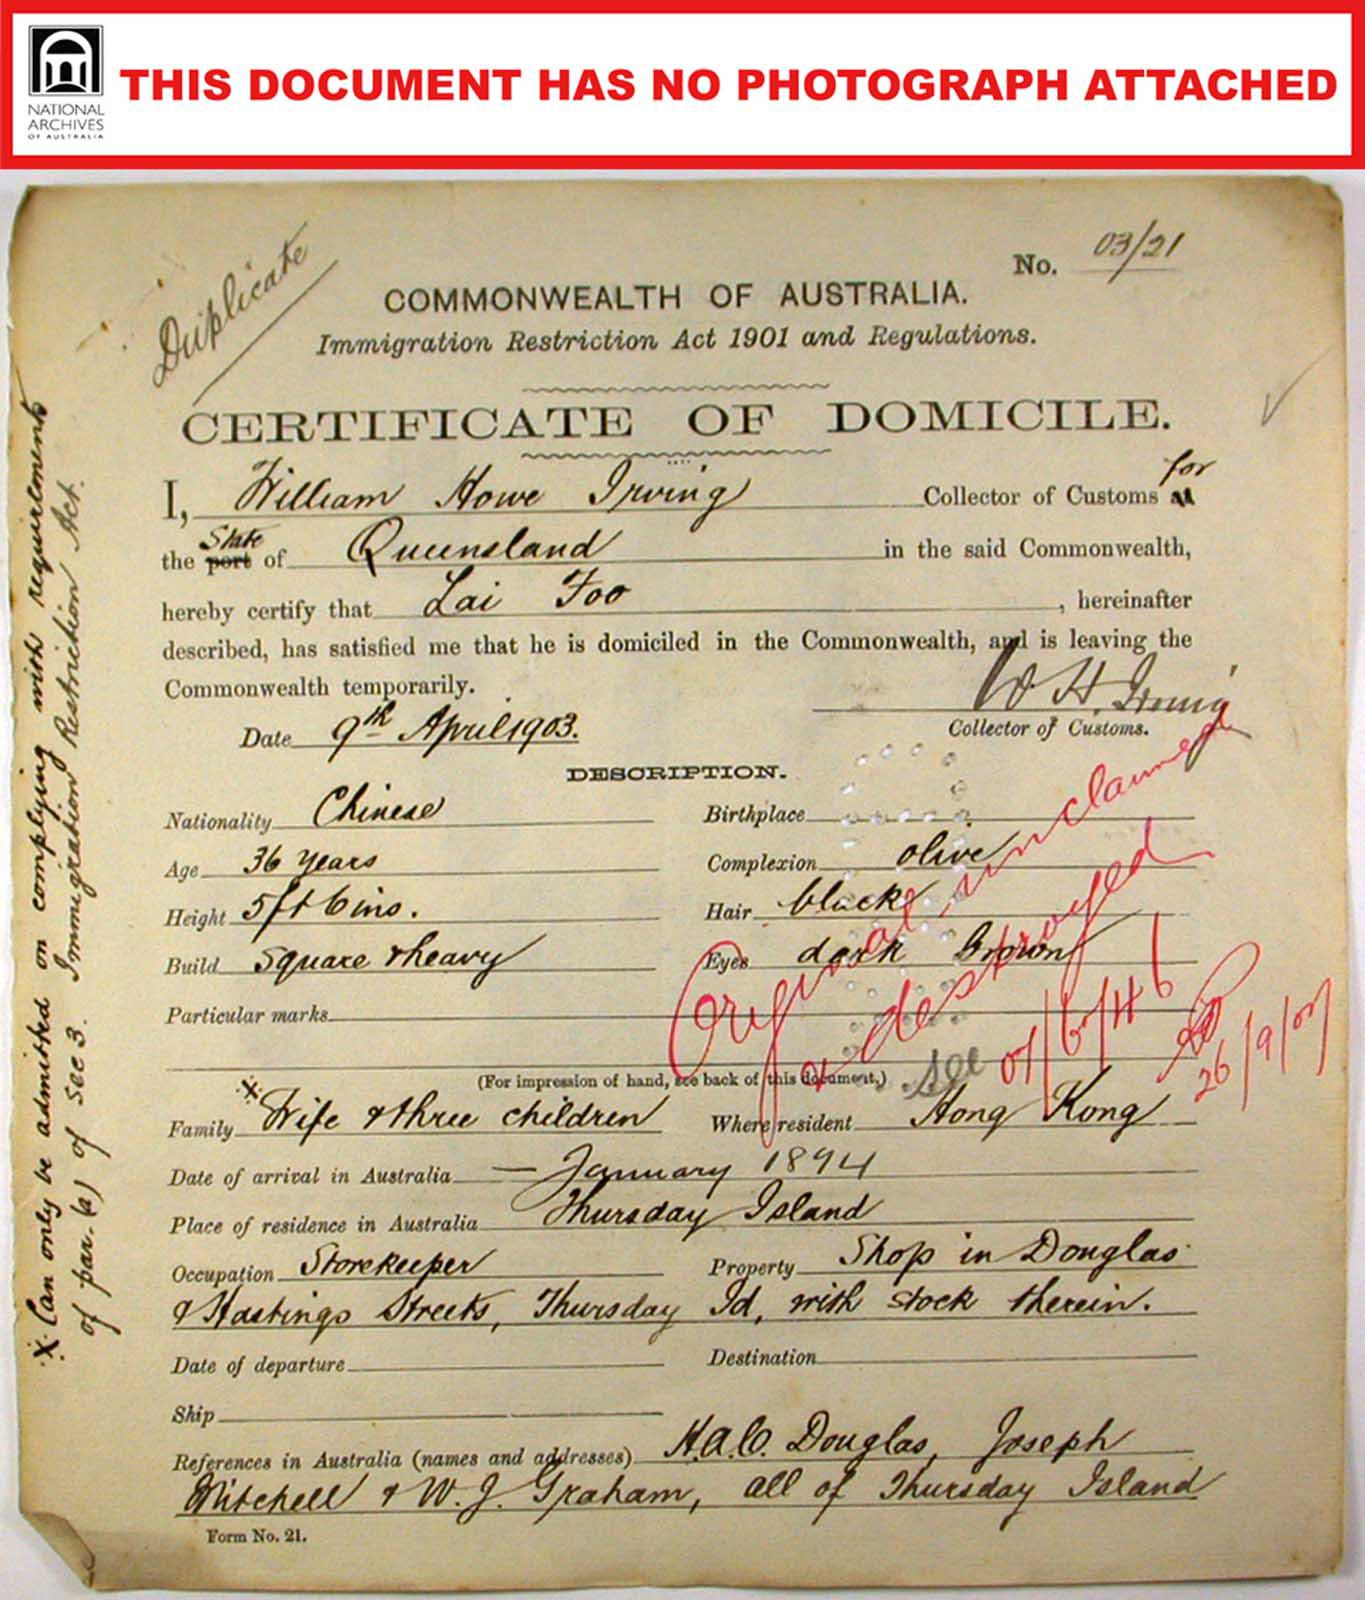 NATIONAL
ARCHIVES
OF AUSTRALIA
THIS DOCUMENT HAS NO PHOTOGRAPH ATTACHED
Duplicate
No. 03/21
COMMONWEALTH OF AUSTRALIA.
Immigration Restriction Act 1901 and Regulations.
CERTIFICATE OF DOMICILE.
I, William Howe Irving Collector of Customs at for
the port State of Queensland in the said Commonwealth,
hereby certify that Lai Foo, hereinafter
described, has satisfied me that he is domiciled in the Commonwealth, and is leaving the
Commonwealth temporarily.
W H. Irving
Date 9th April 1903.
Collector of Customs.
DESCRIPTION.
Nationality Chinese Birthplace
Age 36 years Complexion olive
Height 5ft 6ins. Hair black
Build Square & heavy Eyes dark Brown
Particular marks
(For impression of hand, see back of this document.)
× Family Wife & three children Where resident Hong Kong
Date of arrival in Australia — January 1894
Place of residence in Australia Thursday Island
Occupation Storekeeper Property Shop in Douglas
& Hastings Streets, Thursday Id, with stock therein.
Date of departure Destination
Ship
References in Australia (names and addresses) H.A.C. Douglas, Joseph
Mitchell & W. J. Graham, all of Thursday Island
Form No. 21.
× Can only be admitted on complying with requirements
of par. (a) of Sec 3. Immigration Restriction Act.
Original unclaimed
& destroyed
See 07/6/46
26/9/07